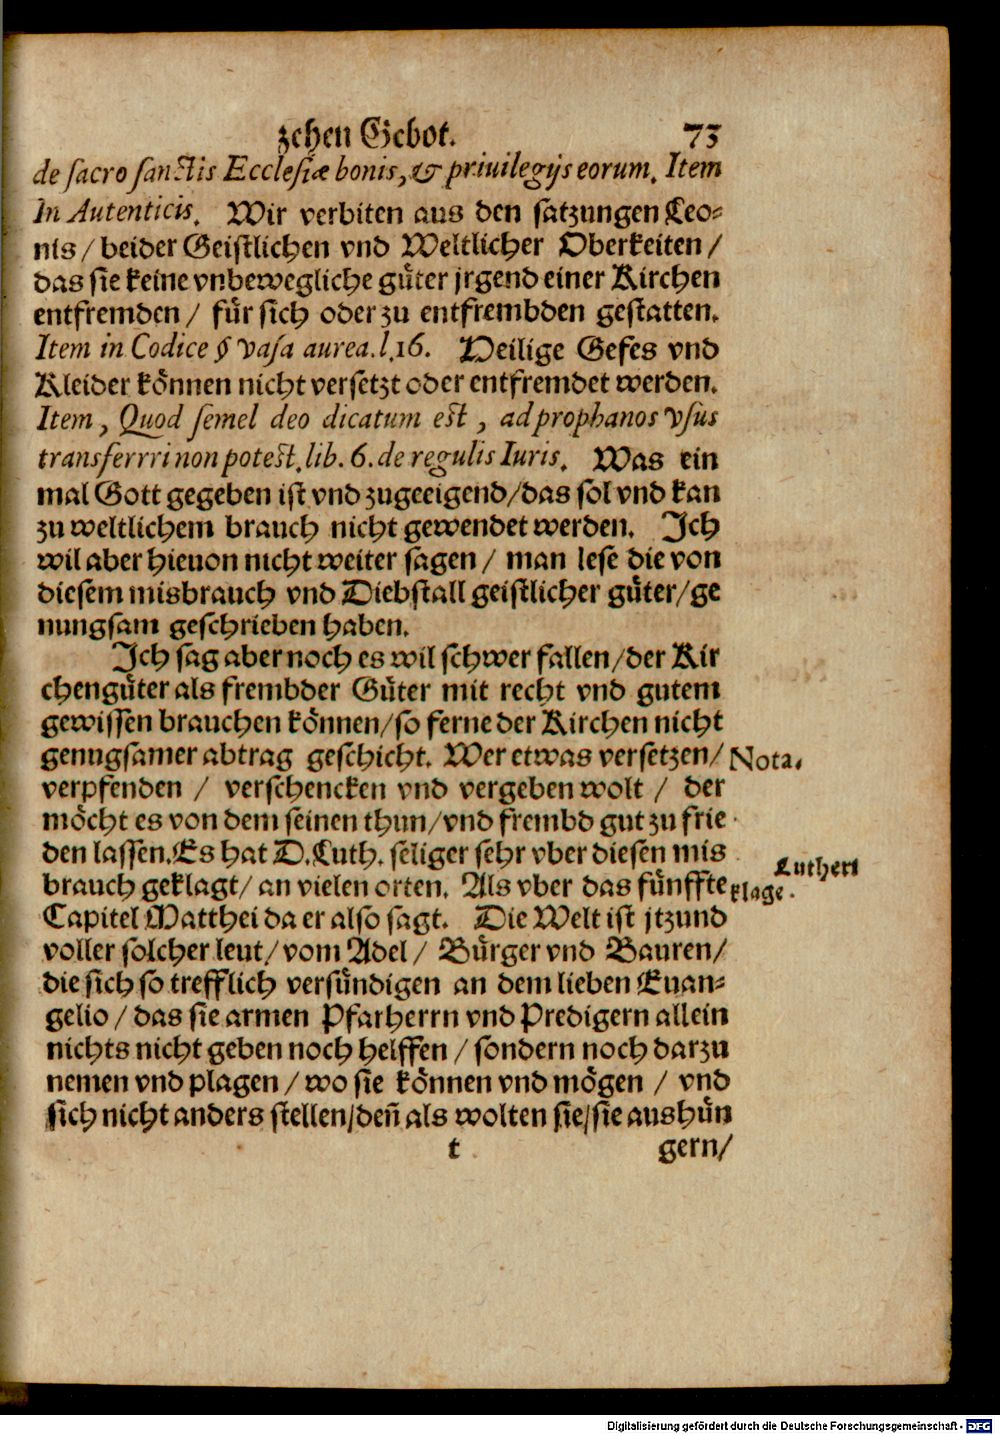 zehen Gebot. 73
de sacro sanctis Ecclesiæ bonis, & priuilegijs eorum. Item
In Autenticis. Wir verbiten aus den satzungen Leo⸗
nis / beider Geistlichen vnd Weltlicher Oberkeiten /
das sie keine vnbewegliche güter jrgend einer Kirchen
entfremden / für sich oder zu entfrembden gestatten.
Item in Codice § vasa aurea. l. 16. Heilige Gefes vnd
Kleider können nicht versetzt oder entfremdet werden.
Item, Quod semel deo dicatum est, ad prophanos vsus
transferrri non potest. lib. 6. de regulis Iuris. Was ein
mal Gott gegeben ist vnd zugeeigend / das sol vnd kan
zu weltlichem brauch nicht gewendet werden. Ich
wil aber hieuon nicht weiter sagen / man lese die von
diesem misbrauch vnd Diebstall geistlicher güter / ge
nungsam geschrieben haben.
Ich sag aber noch es wil schwer fallen / der Kir
chengüter als frembder Güter mit recht vnd gutem
gewissen brauchen können / so ferne der Kirchen nicht
genugsamer abtrag geschicht. Wer etwas versetzen /
Nota.
verpfenden / verschencken vnd vergeben wolt / der
möcht es von dem seinen thun / vnd frembd gut zu frie
den lassen. Es hat D. Luth. seliger sehr vber diesen mis
brauch geklagt / an vielen orten. Als vber das fünffte
Lutheri
klage.
Capitel Matthei da er also sagt. Die Welt ist jtzund
voller solcher leut / vom Adel / Bürger vnd Bauren /
die sich so trefflich versündigen an dem lieben Euan⸗
gelio / das sie armen Pfarherrn vnd Predigern allein
nichts nicht geben noch helffen / sondern noch darzu
nemen vnd plagen / wo sie können vnd mögen / vnd
sich nicht anders stellen / deñ als wolten sie / sie aushün
t gern /
Digitalisierung gefördert durch die Deutsche Forschungsgemeinschaft - DFG